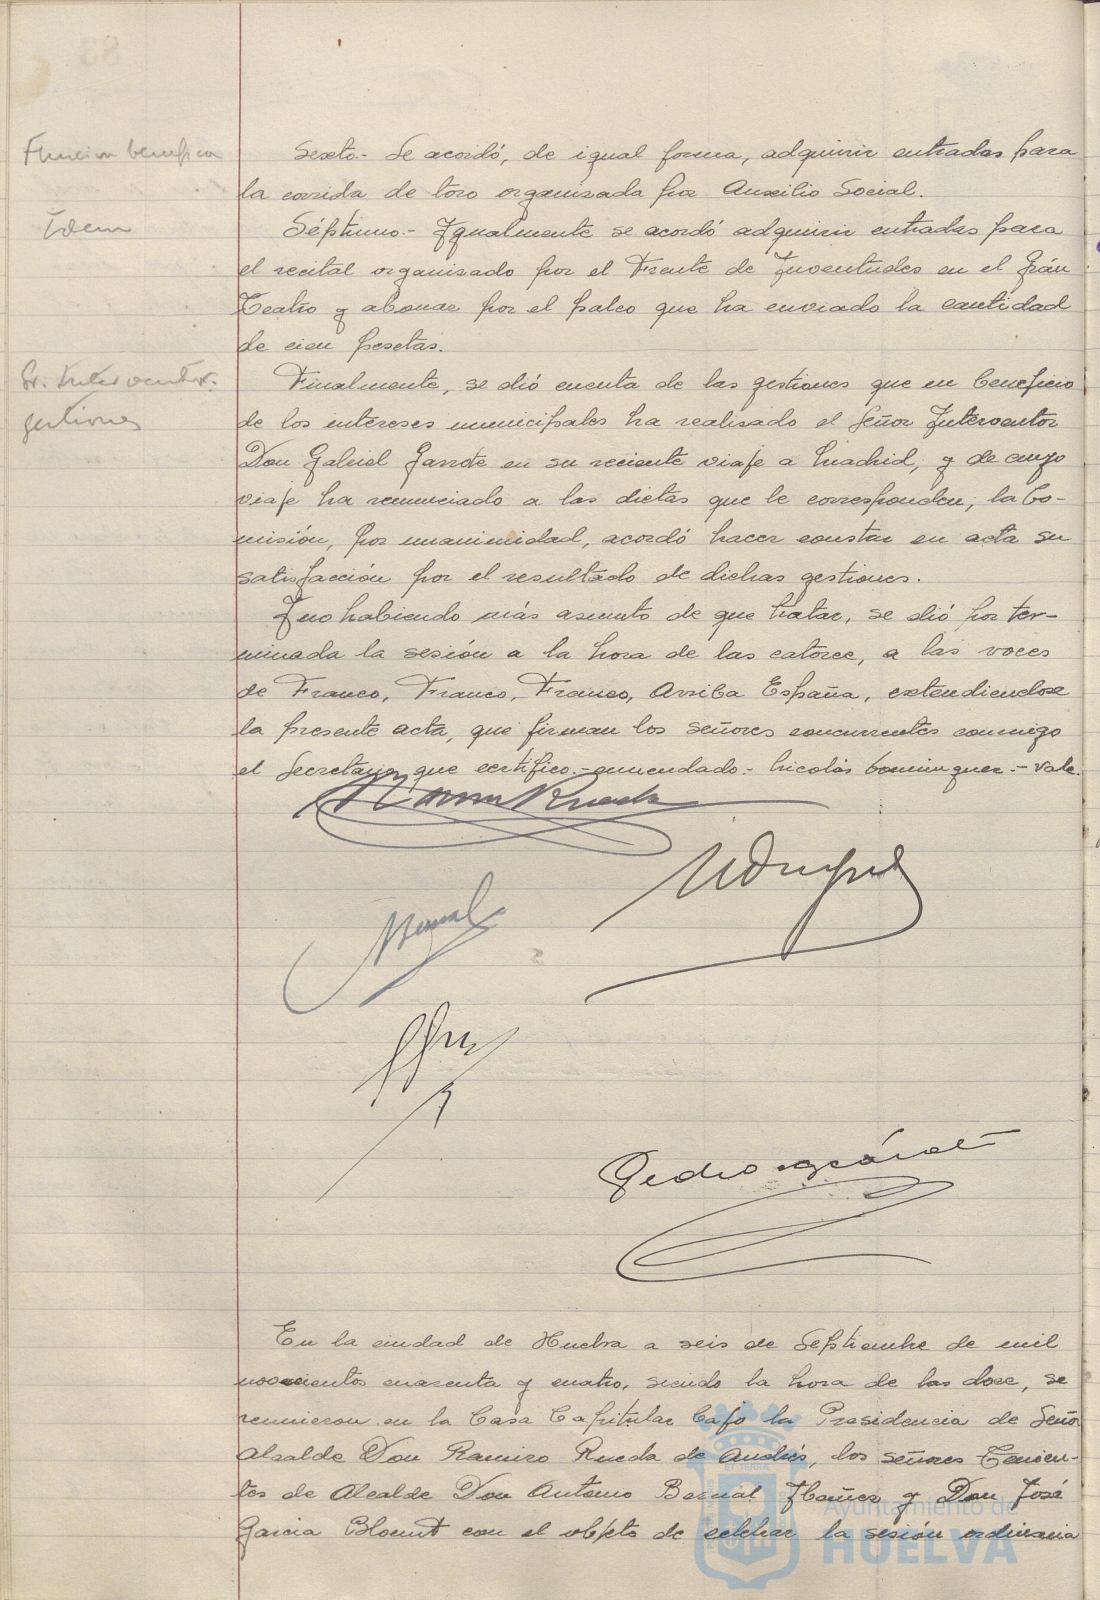 Función benéfica
Sexto.- Se acordó, de igual forma, adquirir entradas para
la corrida de toro organizada por Auxilio Social.
Idem
Séptimo.- Igualmente se acordó adquirir entradas para
el recital organizado por el Frente de Juventudes en el Grán
Teatro y abonar por el palco que ha enviado la cantidad
de cien pesetas.
Sr. Interventor.
gestiones
Finalmente, se dió cuenta de las gestiones que en beneficio
de los intereses municipales ha realizado el Señor Interventor
Don Gabriel Garrote en su reciente viaje a Madrid, y de cuyo
viaje ha renunciado a las dietas que le corresponden; la Co-
misión, por unanimidad, acordó hacer constar en acta su
satisfacción por el resultado de dichas gestiones.
Y no habiendo más asunto de que tratar, se dió por ter-
minada la sesión a la hora de las catorce, a las voces
de Franco, Franco, Franco, Arriba España, extendiendose
la presente acta, que firman los señores concurrentes conmigo
el Secretario, que certifico.- enmendado.- Nicolás Dominguez.- Vale.
Ramiro Rueda
Bernal
Pedro
En la ciudad de Huelva a seis de Septiembre de mil
novecientos cuarenta y cuatro, siendo la hora de las doce, se
reunieron en la Casa Capitular bajo la Presidencia de Señor
Alcalde Don Ramiro Rueda de Andrés, los señores Tenien-
tes de Alcalde Don Antonio Bernal Ibañez y Don José
Garcia Blount con el objeto de celebrar la sesión ordinaria
Ayuntamiento de
HUELVA